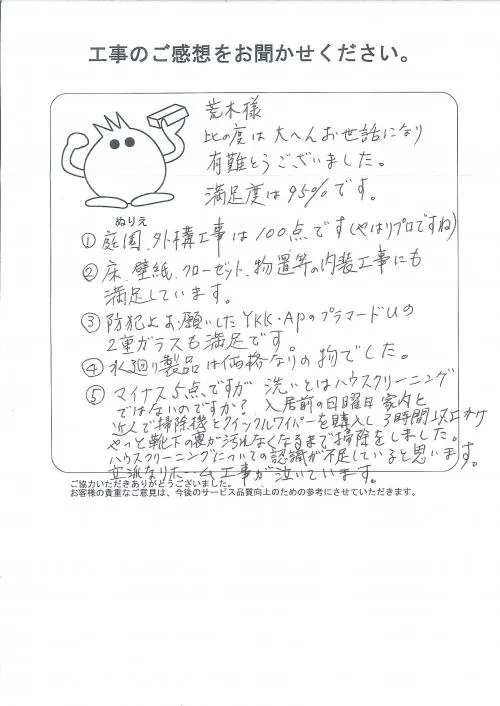 工事のご感想をお聞かせください。
荒木様
此の度は大へんお世話になり
有難とうございました。
満足度は95%です。
ぬりえ
① 庭園、外構工事は100点です(やはりプロですね)
② 床、壁紙、クローゼット、物置等の内装工事にも
満足しています。
③ 防犯よお願いしたYKK・APのプラマードUの
2重ガラスも満足です。
④ 水廻り製品は価格なりの物でした。
⑤ マイナス5点、ですが 洗いとはハウスクリーニング
ではないのですか? 入居前の日曜日家内と
近くで掃除機とクイックルワイパーを購入し3時間以上かけ
やっと靴下の裏が汚れなくなるまで掃除をしました。
ハウスクリーニングについての認識が不足していると思います。
立派なリホーム工事が泣いています。
ご協力いただきありがとうございました。
お客様の貴重なご意見は、今後のサービス品質向上のための参考にさせていただきます。